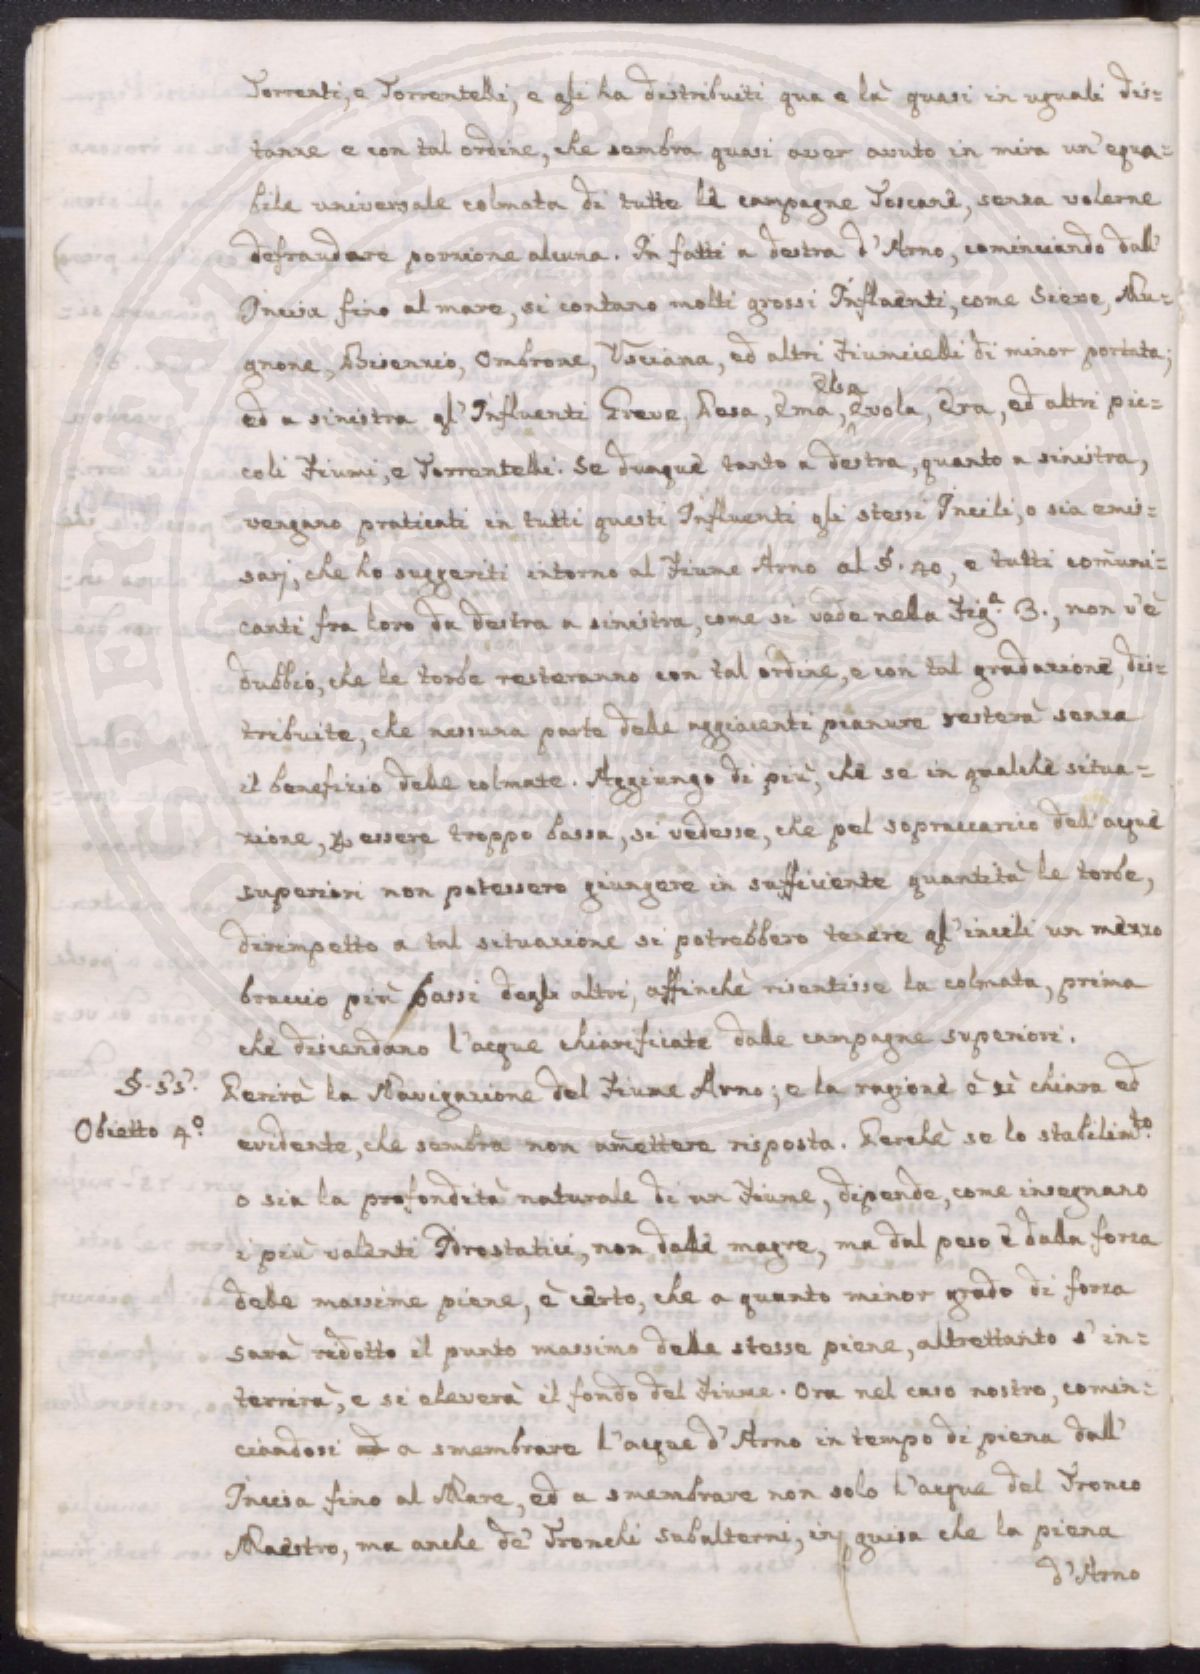 Torrenti, e Torrentelli, e gli ha distribuiti qua e là quasi in uguali dis=
tanze e con tal ordine, che sembra quasi aver avuto in mira un'equa=
bile universale colmata di tutte le campagne Toscane, senza volerne
defraudare porzione alcuna. In fatti a destra d'Arno, cominciando dall'
Incisa fino al mare, si contano molti grossi Influenti, come Sieve, Mu=
gnone, Bisenzio, Ombrone, Usciana, ed altri Fiumicelli di minor portata;
ed a sinistra gl'Influenti Greve, Pesa, Ema, Elsa, Evola, Era, ed altri pic=
coli Fiumi, e Torrentelli. Se dunque tanto a destra, quanto a sinistra,
vengano praticati in tutti questi Influenti gli stessi Incili, o sia emis=
sarj, che ho suggeriti intorno al Fiume Arno al §. 40, e tutti comuni=
canti fra loro da destra a sinistra, come si vede nella Fig.ª 3., non v'è
dubbio, che le torbe resteranno con tal ordine, e con tal gradazione, dis=
tribuite, che nessuna parte delle aggiacenti pianure resterà senza
il benefizio delle colmate. Aggiungo di più, che se in qualche situa=
zione, p essere troppo bassa, si vedesse, che pel sopraccarico dell'acque
superiori non potessero giungere in sufficiente quantità le torbe,
dirimpetto a tal situazione si potrebbero tenere gl'incili un mezzo
braccio più bassi degli altri, affinchè risentisse la colmata, prima
che discendano l'acque chiarificate dalle campagne superiori.
§. 55. Perirà la Navigazione del Fiume Arno; e la ragione è sì chiara ed
Obietto 4º. evidente, che sembra non amettere risposta. Perchè se lo stabilim.to
o sia la profondità naturale di un Fiume, dipende, come insegnano
i più valenti Idrostatici, non dalle magre, ma dal peso e dalla forza
delle massime piene, è certo, che a quanto minor grado di forza
sarà ridotto il punto massimo delle stesse piene, altrettanto s'in=
terrirà, e si eleverà il fondo del Fiume. Ora nel caso nostro, comin=
ciandosi a smembrare l'acque d'Arno in tempo di piena dall'
Incisa fino al Mare, ed a smembrare non solo l'acque del Tronco
Maestro, ma anche de' Tronchi subalterni, in guisa che la piena
d'Arno